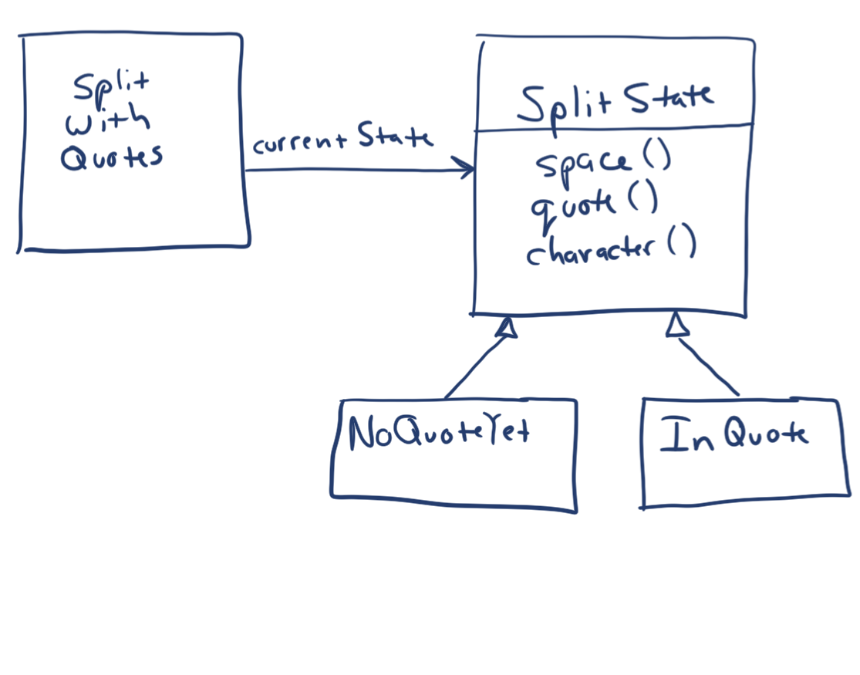 Split
With
Quotes
current State
Split State
space ()
quote ()
character ()
NoQuoteYet
In Quote